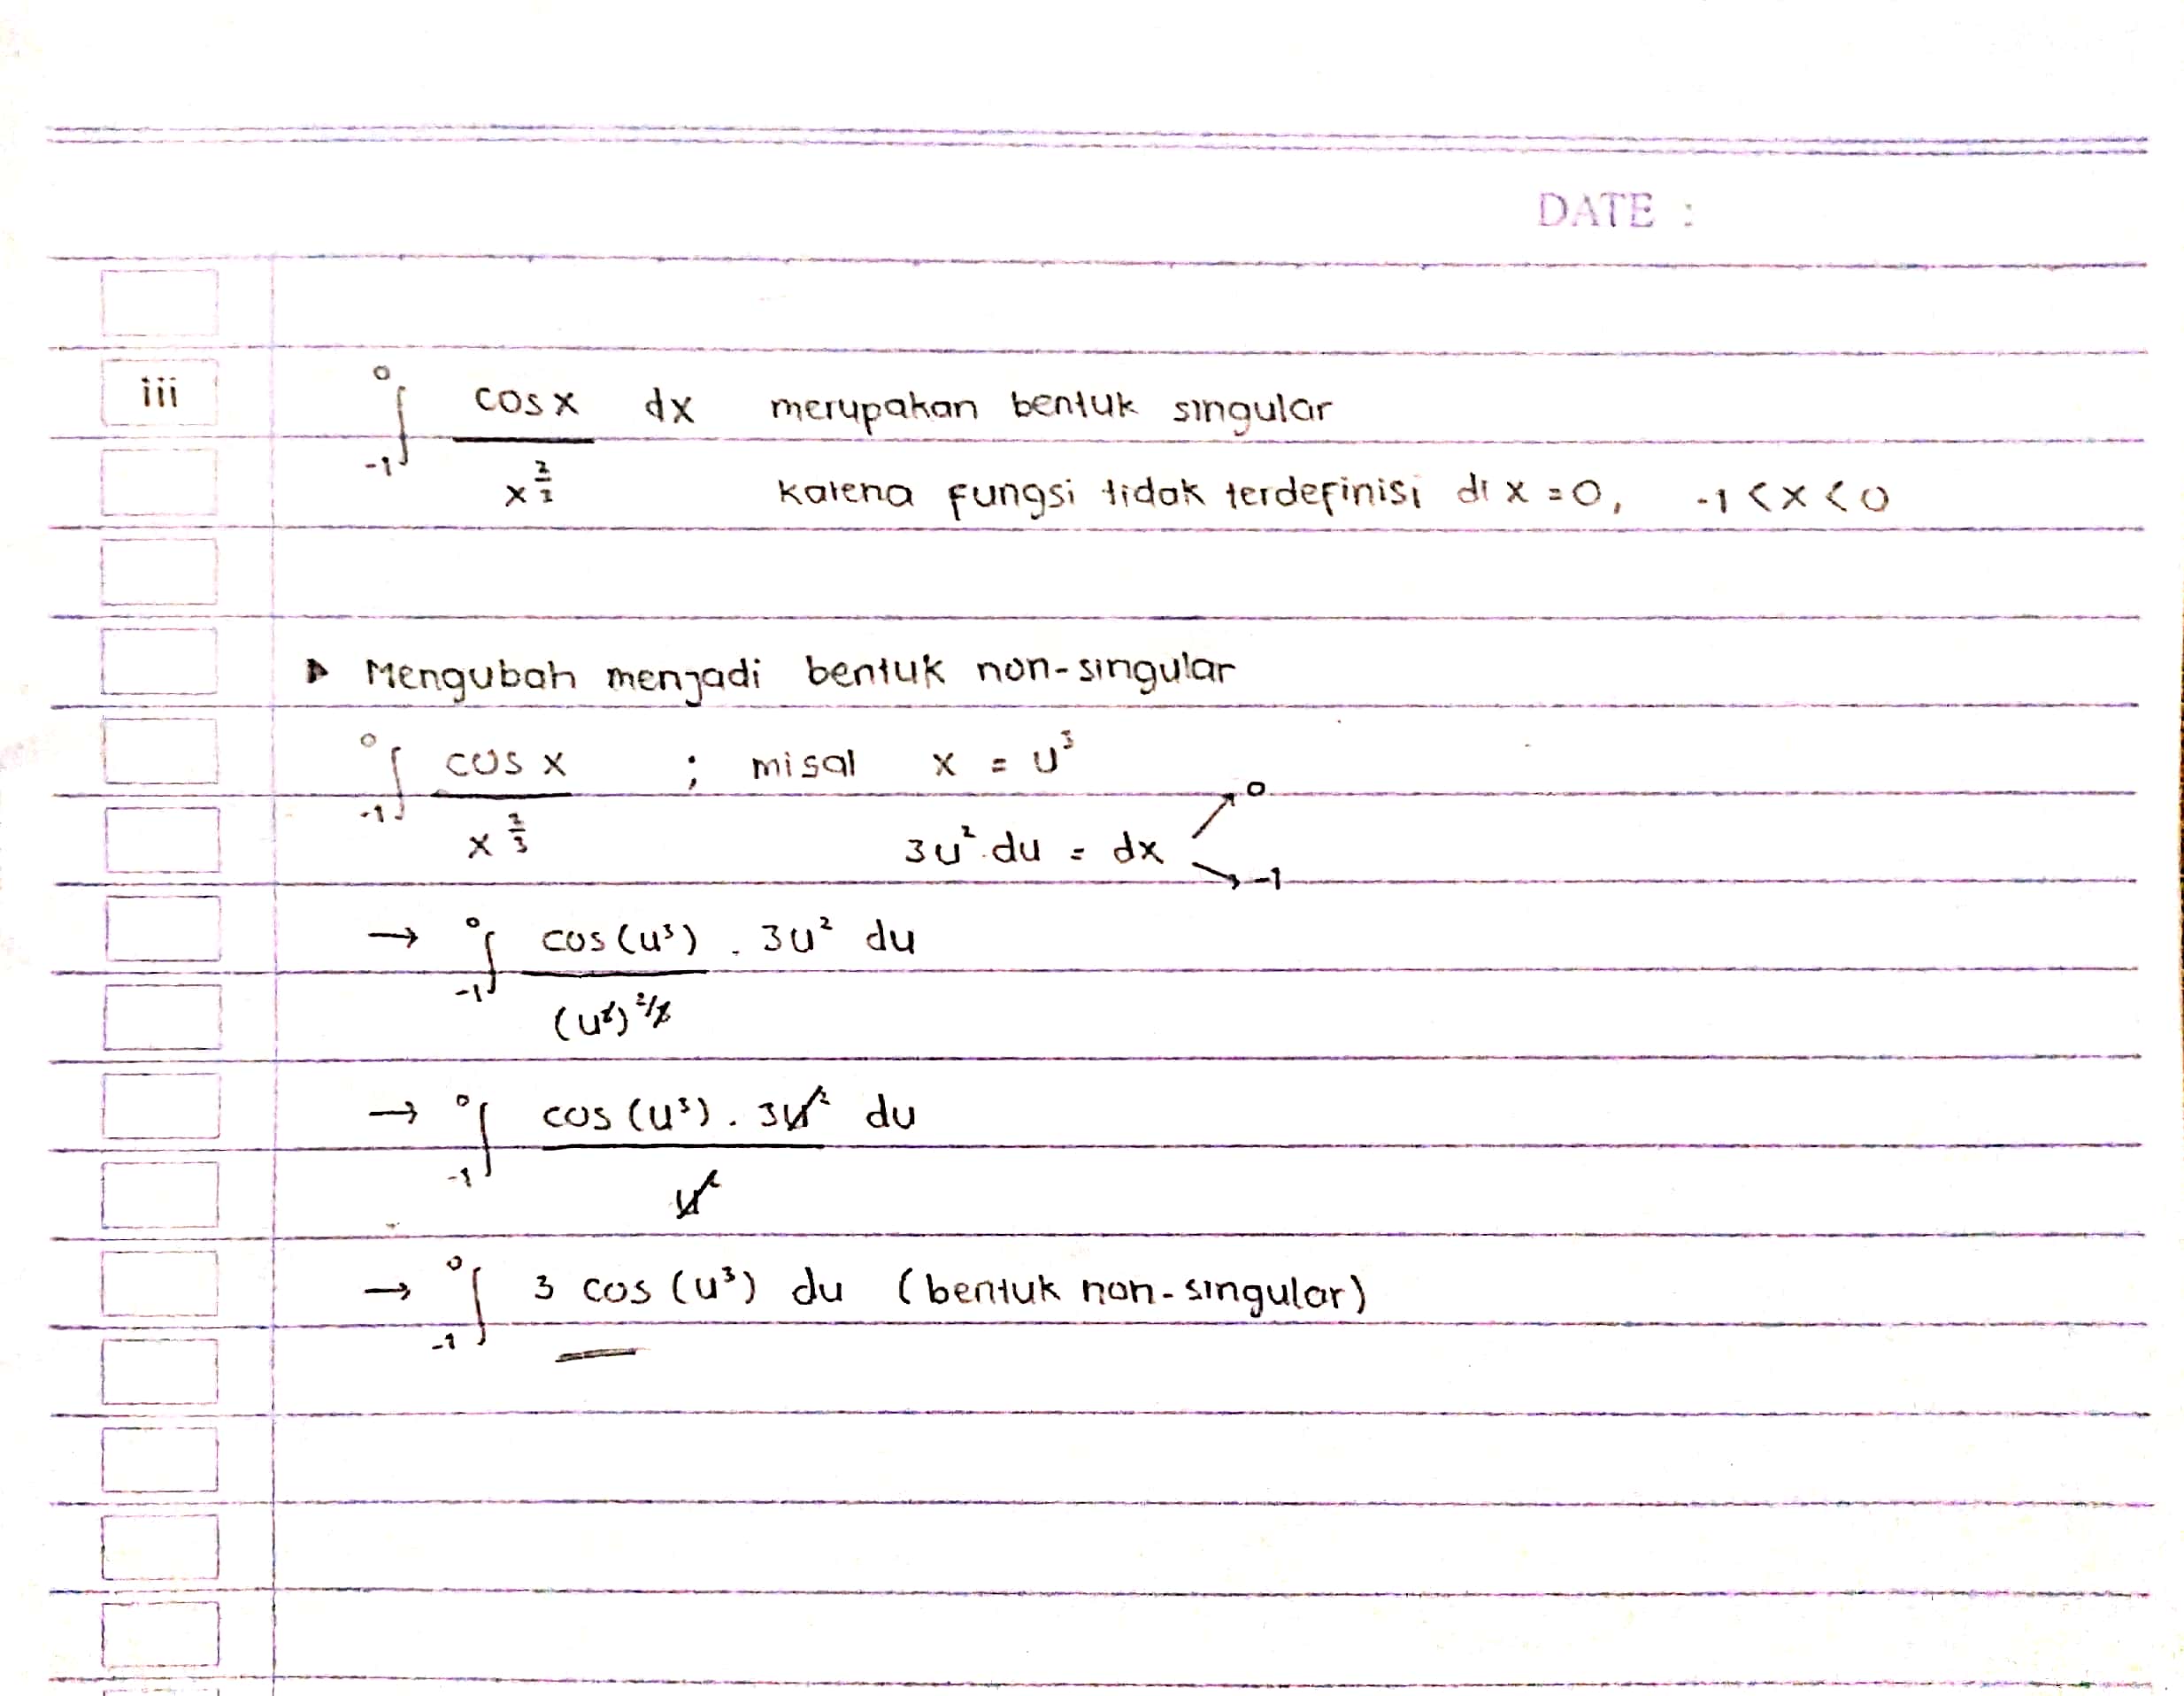 DATE :
iii ∫₋₁⁰ cos x / x^(2/3) dx merupakan bentuk singular
karena fungsi tidak terdefinisi di x = 0, -1 < x < 0
▶ Mengubah menjadi bentuk non-singular
∫₋₁⁰ cos x / x^(2/3) ; misal x = u³
3u² du = dx ↗ 0 ↘ -1
→ ∫₋₁⁰ cos(u³) / (u³)^(2/3) . 3u² du
→ ∫₋₁⁰ cos(u³) . 3u² / u² du
→ ∫₋₁⁰ 3 cos(u³) du (bentuk non-singular)